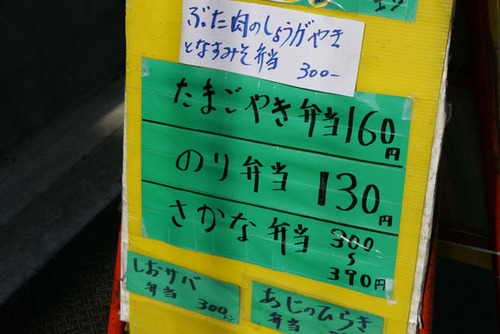 ぶた肉のしょうがやき
となすみそ弁当 300-
たまごやき弁当 160円
のり弁当 130円
さかな弁当 300
〜
390円
しおサバ
弁当 300
あじのひらき
弁当